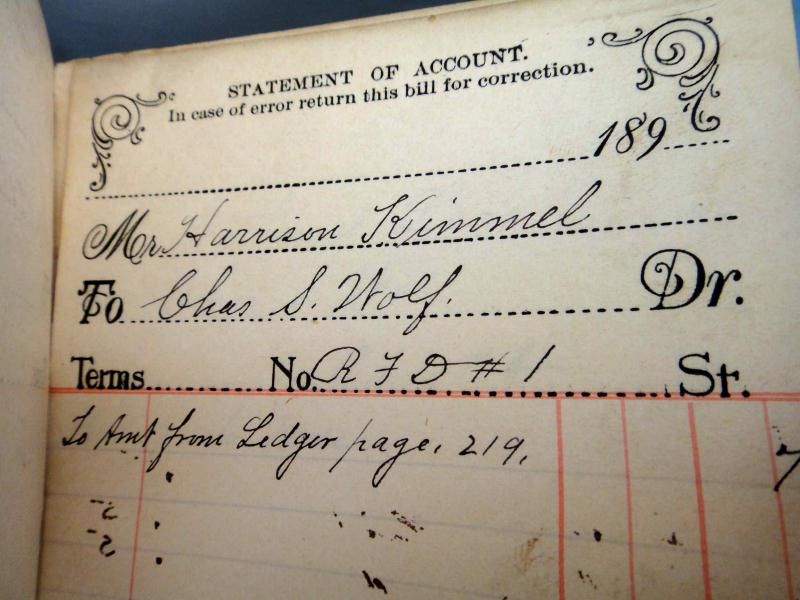 STATEMENT OF ACCOUNT.
In case of error return this bill for correction.
189
Mr Harrison Kimmel
To Chas S. Wolf. Dr.
Terms No. R F D # 1 St.
To Amt from Ledger page. 219.